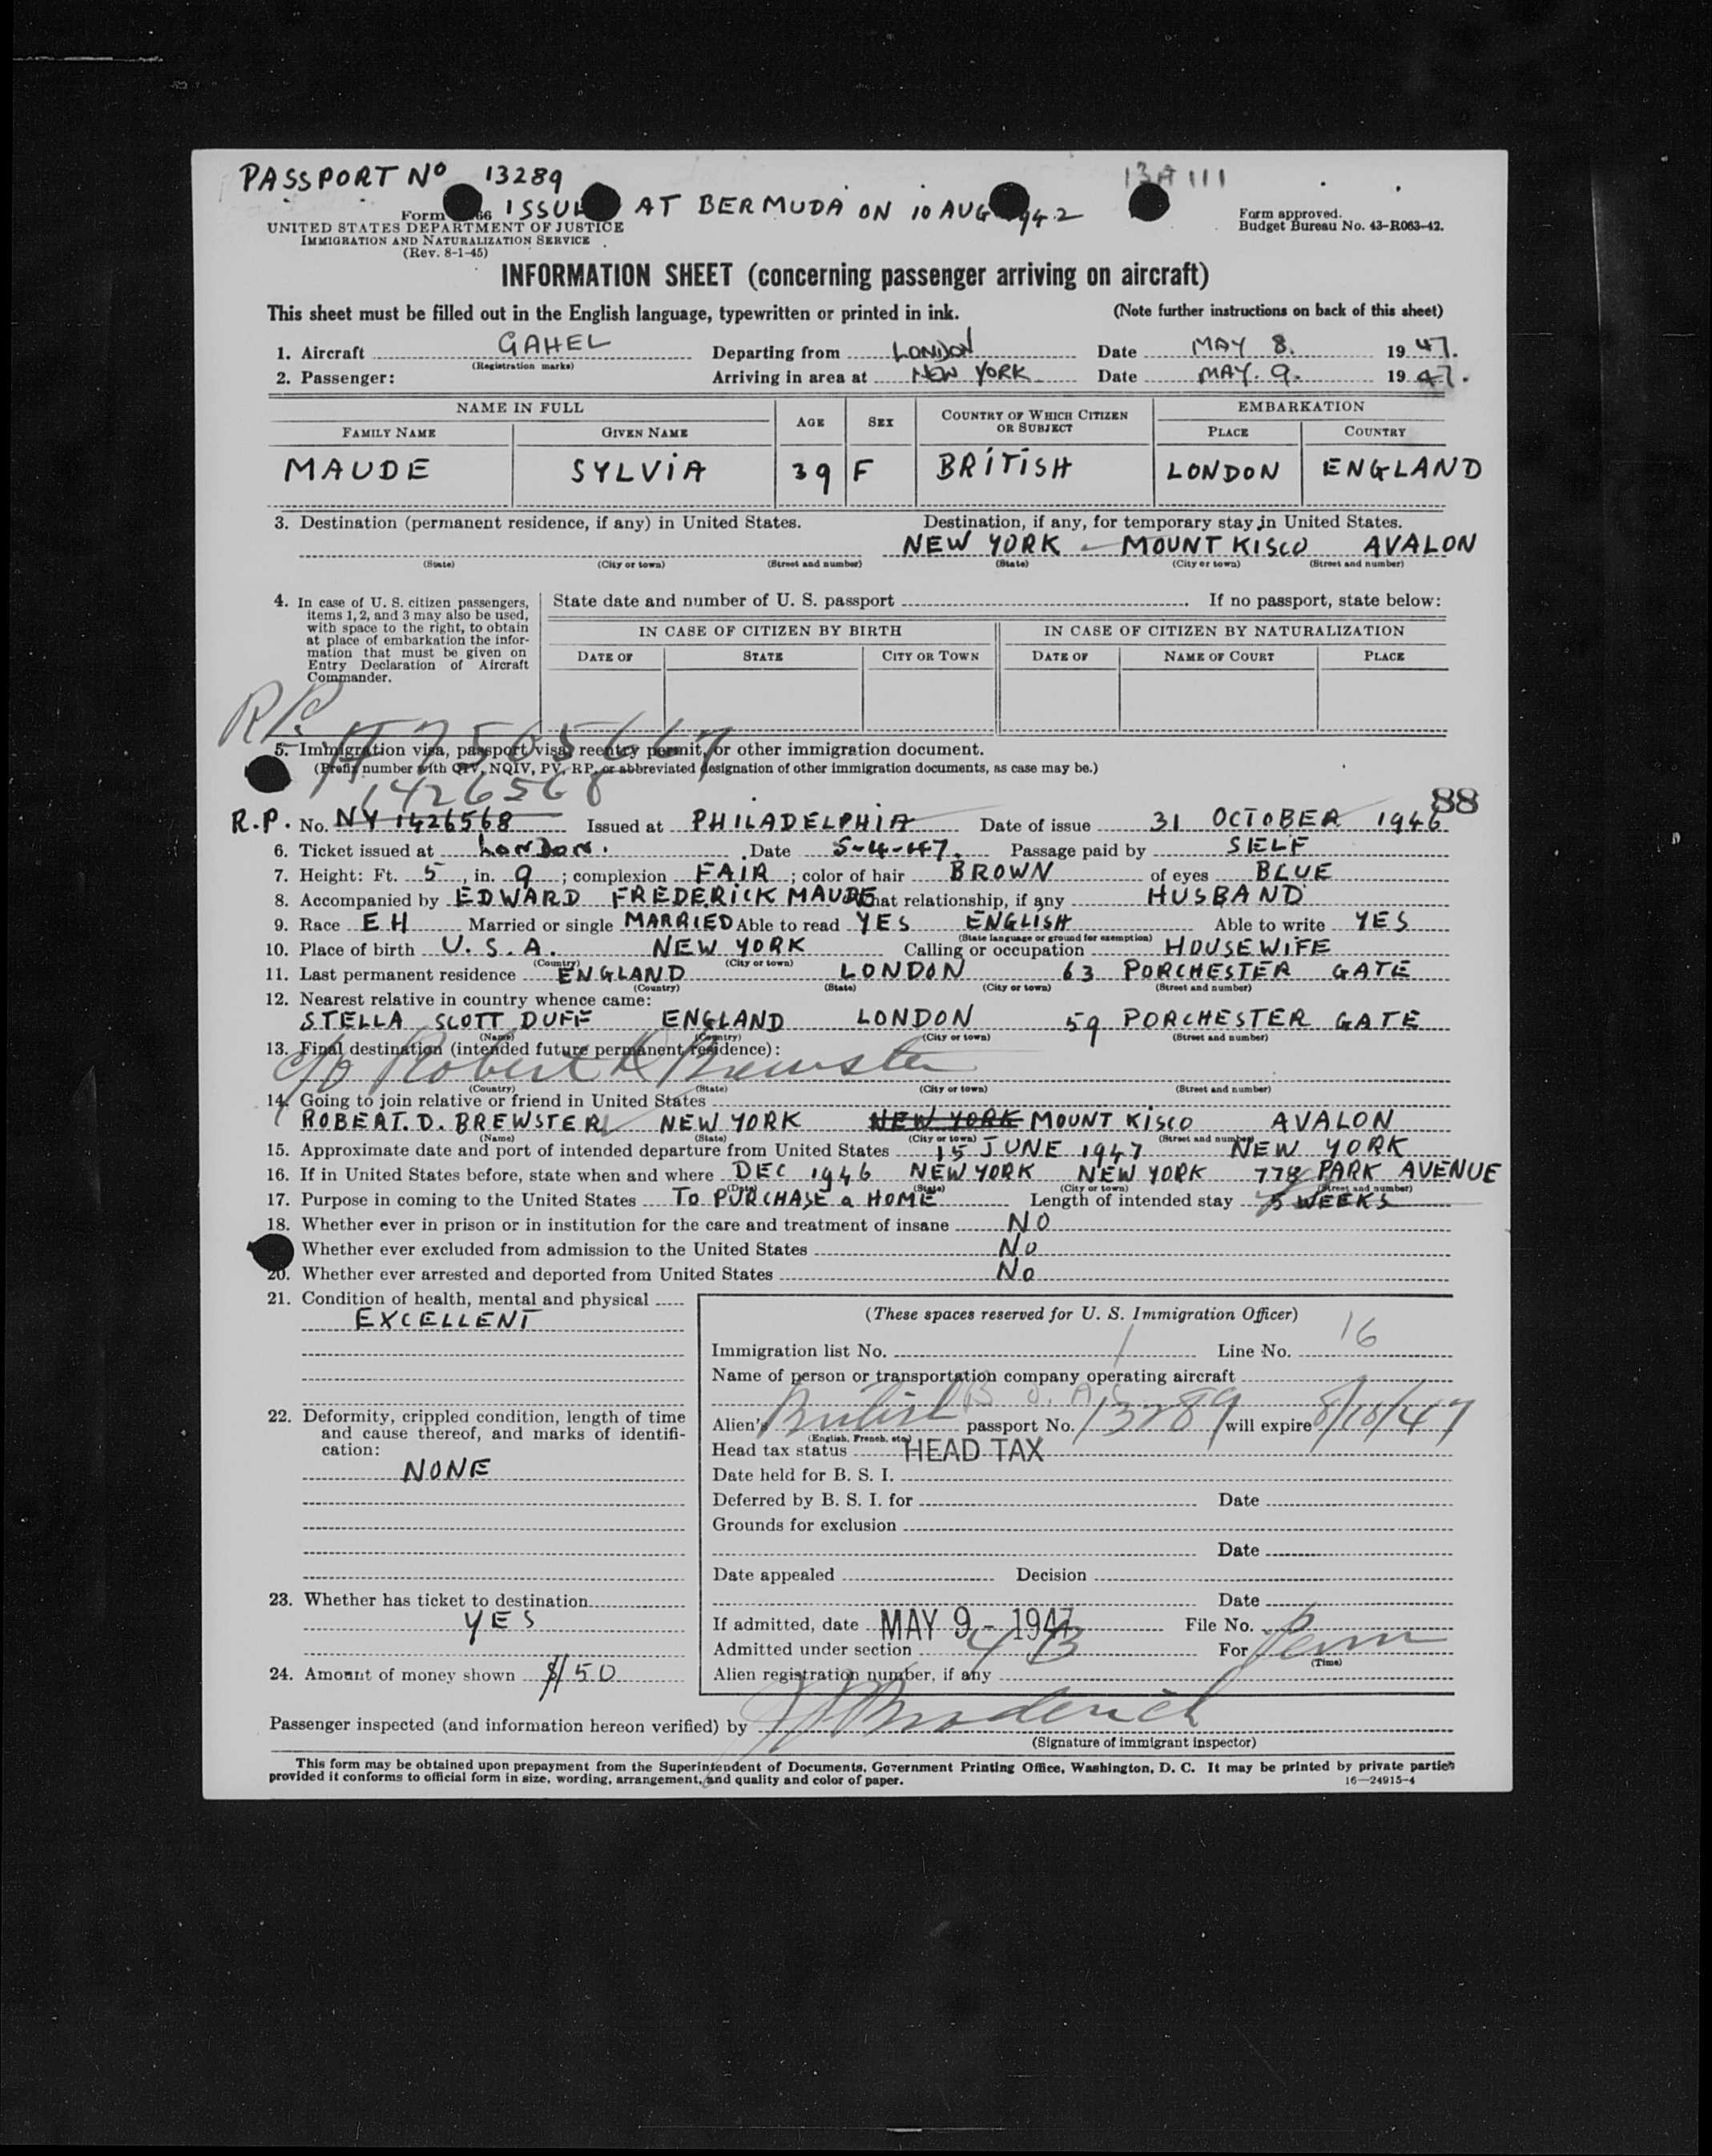 PASSPORT Nº 13289
13A111
ISSUED AT BERMUDA ON 10 AUG 1942
Form 66
UNITED STATES DEPARTMENT OF JUSTICE
IMMIGRATION AND NATURALIZATION SERVICE
(Rev. 8-1-45)
Form approved.
Budget Bureau No. 43-R063-42.
INFORMATION SHEET (concerning passenger arriving on aircraft)
This sheet must be filled out in the English language, typewritten or printed in ink. (Note further instructions on back of this sheet)
1. Aircraft GAHEL Departing from LONDON Date MAY 8. 1947.
(Registration marks)
2. Passenger: Arriving in area at NEW YORK Date MAY. 9. 1947.
NAME IN FULL AGE SEX COUNTRY OF WHICH CITIZEN OR SUBJECT EMBARKATION
FAMILY NAME GIVEN NAME PLACE COUNTRY
MAUDE SYLVIA 39 F BRITISH LONDON ENGLAND
3. Destination (permanent residence, if any) in United States. Destination, if any, for temporary stay in United States.
NEW YORK - MOUNT KISCO AVALON
(State) (City or town) (Street and number) (State) (City or town) (Street and number)
4. In case of U. S. citizen passengers, items 1, 2, and 3 may also be used, with space to the right, to obtain at place of embarkation the information that must be given on Entry Declaration of Aircraft Commander.
State date and number of U. S. passport . If no passport, state below:
IN CASE OF CITIZEN BY BIRTH IN CASE OF CITIZEN BY NATURALIZATION
DATE OF STATE CITY OR TOWN DATE OF NAME OF COURT PLACE
R.P.
A 7505667
5. Immigration visa, passport visa, reentry permit, or other immigration document.
(Prefix number with QIV, NQIV, PV, RP, or abbreviated designation of other immigration documents, as case may be.)
1426568
88
R.P. No. NY 1426568 Issued at PHILADELPHIA Date of issue 31 OCTOBER 1946
6. Ticket issued at London. Date 5-4-47. Passage paid by SELF
7. Height: Ft. 5, in. 9; complexion FAIR; color of hair BROWN of eyes BLUE
8. Accompanied by EDWARD FREDERICK MAUDE What relationship, if any HUSBAND
9. Race EH Married or single MARRIED Able to read YES ENGLISH Able to write YES
(State language or ground for exemption)
10. Place of birth U.S.A. NEW YORK Calling or occupation HOUSEWIFE
(Country) (City or town)
11. Last permanent residence ENGLAND LONDON 63 PORCHESTER GATE
(Country) (State) (City or town) (Street and number)
12. Nearest relative in country whence came:
STELLA SCOTT DUFF ENGLAND LONDON 59 PORCHESTER GATE
(Name) (Country) (City or town) (Street and number)
13. Final destination (intended future permanent residence):
c/o Robert D Brewster
(Country) (State) (City or town) (Street and number)
14. Going to join relative or friend in United States
ROBERT. D. BREWSTER NEW YORK NEW YORK MOUNT KISCO AVALON
(Name) (State) (City or town) (Street and number)
15. Approximate date and port of intended departure from United States 15 JUNE 1947 NEW YORK
16. If in United States before, state when and where DEC 1946 NEW YORK NEW YORK 778 PARK AVENUE
(Date) (State) (City or town) (Street and number)
17. Purpose in coming to the United States TO PURCHASE a HOME Length of intended stay 5 WEEKS
18. Whether ever in prison or in institution for the care and treatment of insane NO
Whether ever excluded from admission to the United States No
20. Whether ever arrested and deported from United States No
21. Condition of health, mental and physical
EXCELLENT
22. Deformity, crippled condition, length of time and cause thereof, and marks of identification:
NONE
23. Whether has ticket to destination
YES
24. Amount of money shown $150
(These spaces reserved for U. S. Immigration Officer)
Immigration list No. 1 Line No. 16
Name of person or transportation company operating aircraft
B O. A C
Alien's British passport No. 13289 will expire 8/10/47
(English, French, etc.)
Head tax status HEAD TAX
Date held for B. S. I.
Deferred by B. S. I. for Date
Grounds for exclusion
Date
Date appealed Decision
Date
If admitted, date MAY 9 - 1947 File No.
Admitted under section 4 B For Perm
(Time)
Alien registration number, if any
Passenger inspected (and information hereon verified) by J Broderick
(Signature of immigrant inspector)
This form may be obtained upon prepayment from the Superintendent of Documents, Government Printing Office, Washington, D. C. It may be printed by private parties
provided it conforms to official form in size, wording, arrangement, and quality and color of paper. 16—24915-4